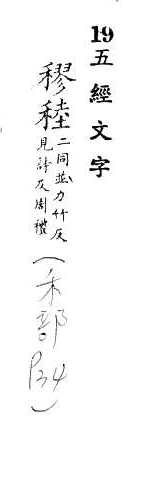 19五經文字
穋稑二同並力竹反
見詩及周禮
(禾部
P34)